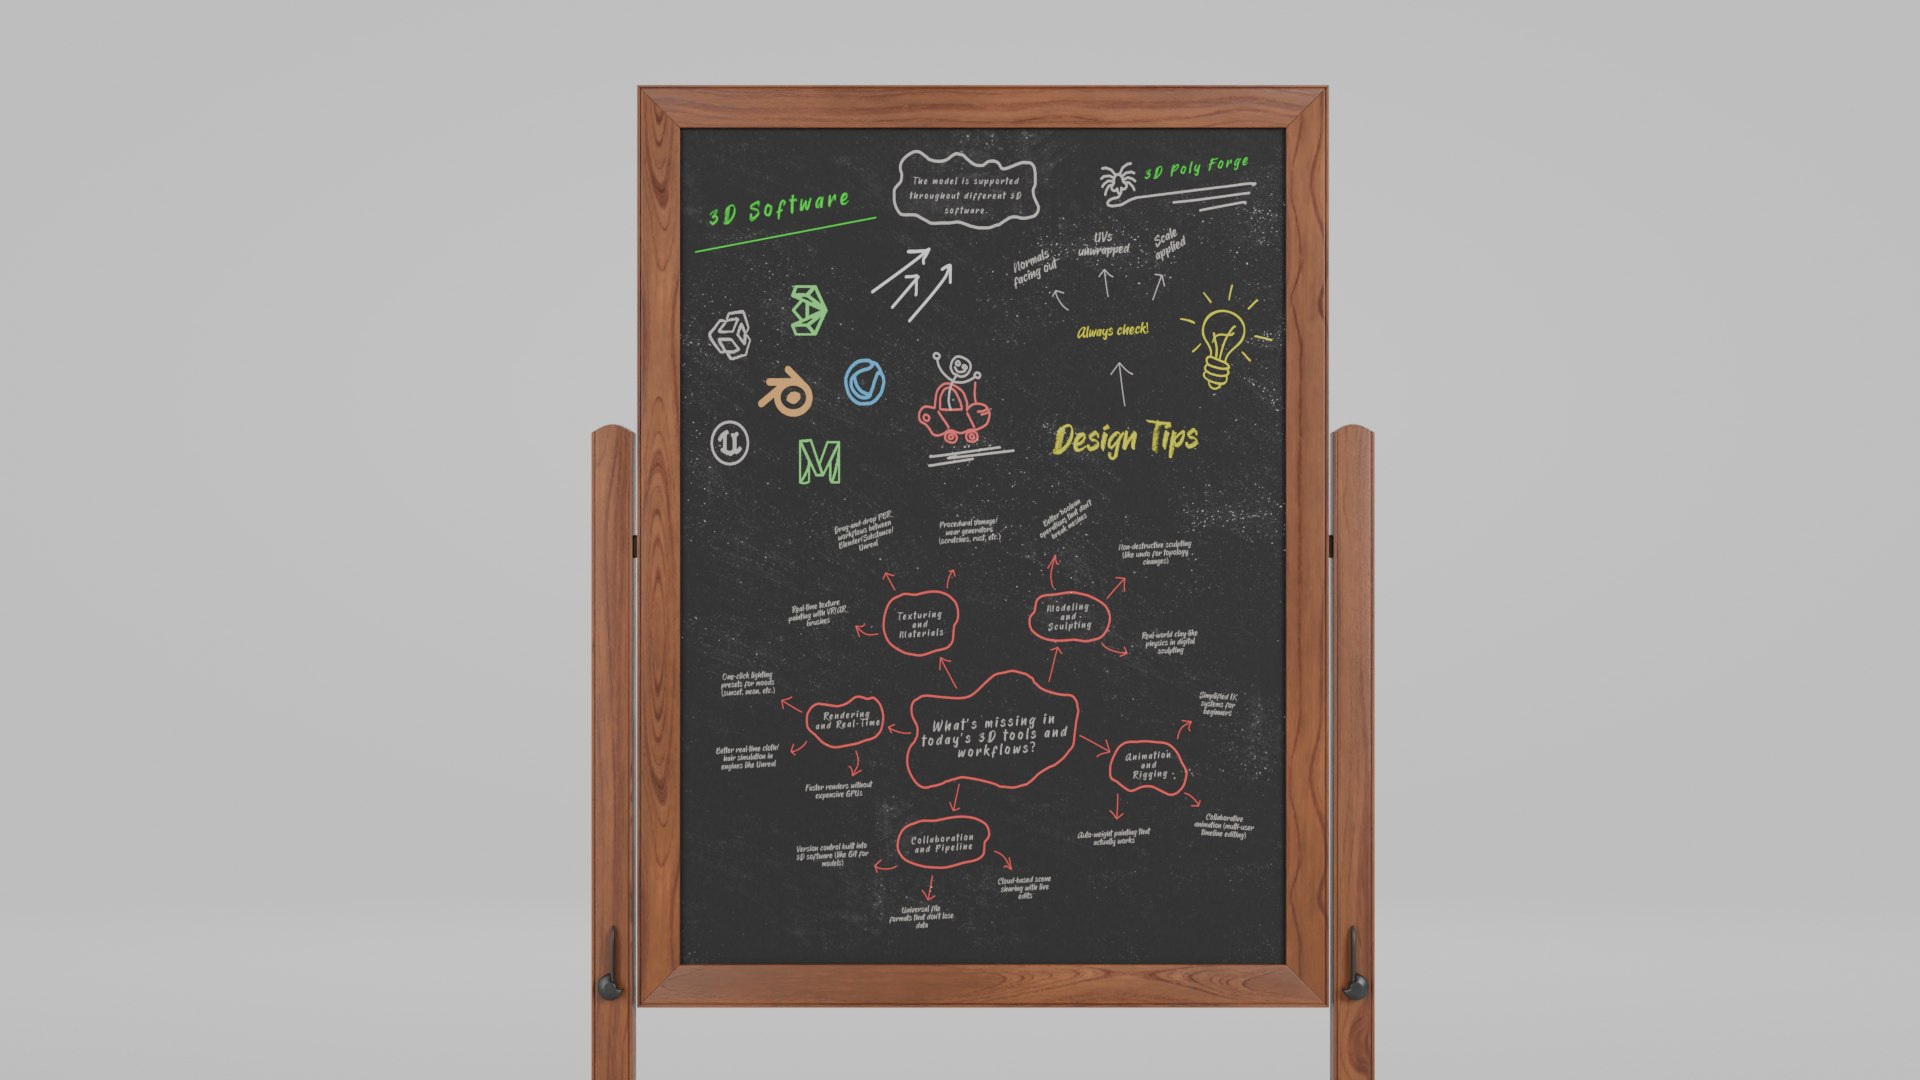 The model is supported
throughout different 3D
software.
3D Poly Forge
3D Software
Normals
facing out
UVs
unwrapped
Scale
applied
Always check!
Design Tips
Drag-and-drop PBR
workflows between
Blender/Substance/
Unreal
Procedural damage/
wear generators
(scratches, rust, etc.)
Better boolean
operations that don't
break meshes
Non-destructive sculpting
(like undo for topology
changes)
Real-time texture
painting with VR/AR
brushes
Texturing
and
Materials
Modeling
and
Sculpting
Real-world clay-like
physics in digital
sculpting
One-click lighting
presets for moods
(sunset, neon, etc.)
Rendering
and Real-Time
What's missing in
today's 3D tools and
workflows?
Simplified IK
systems for
beginners
Better real-time cloth/
hair simulation in
engines like Unreal
Faster renders without
expensive GPUs
Animation
and
Rigging
Auto-weight painting that
actually works
Collaborative
animation (multi-user
timeline editing)
Collaboration
and Pipeline
Version control built into
3D software (like Git for
models)
Universal file
formats that don't lose
data
Cloud-based scene
sharing with live
edits